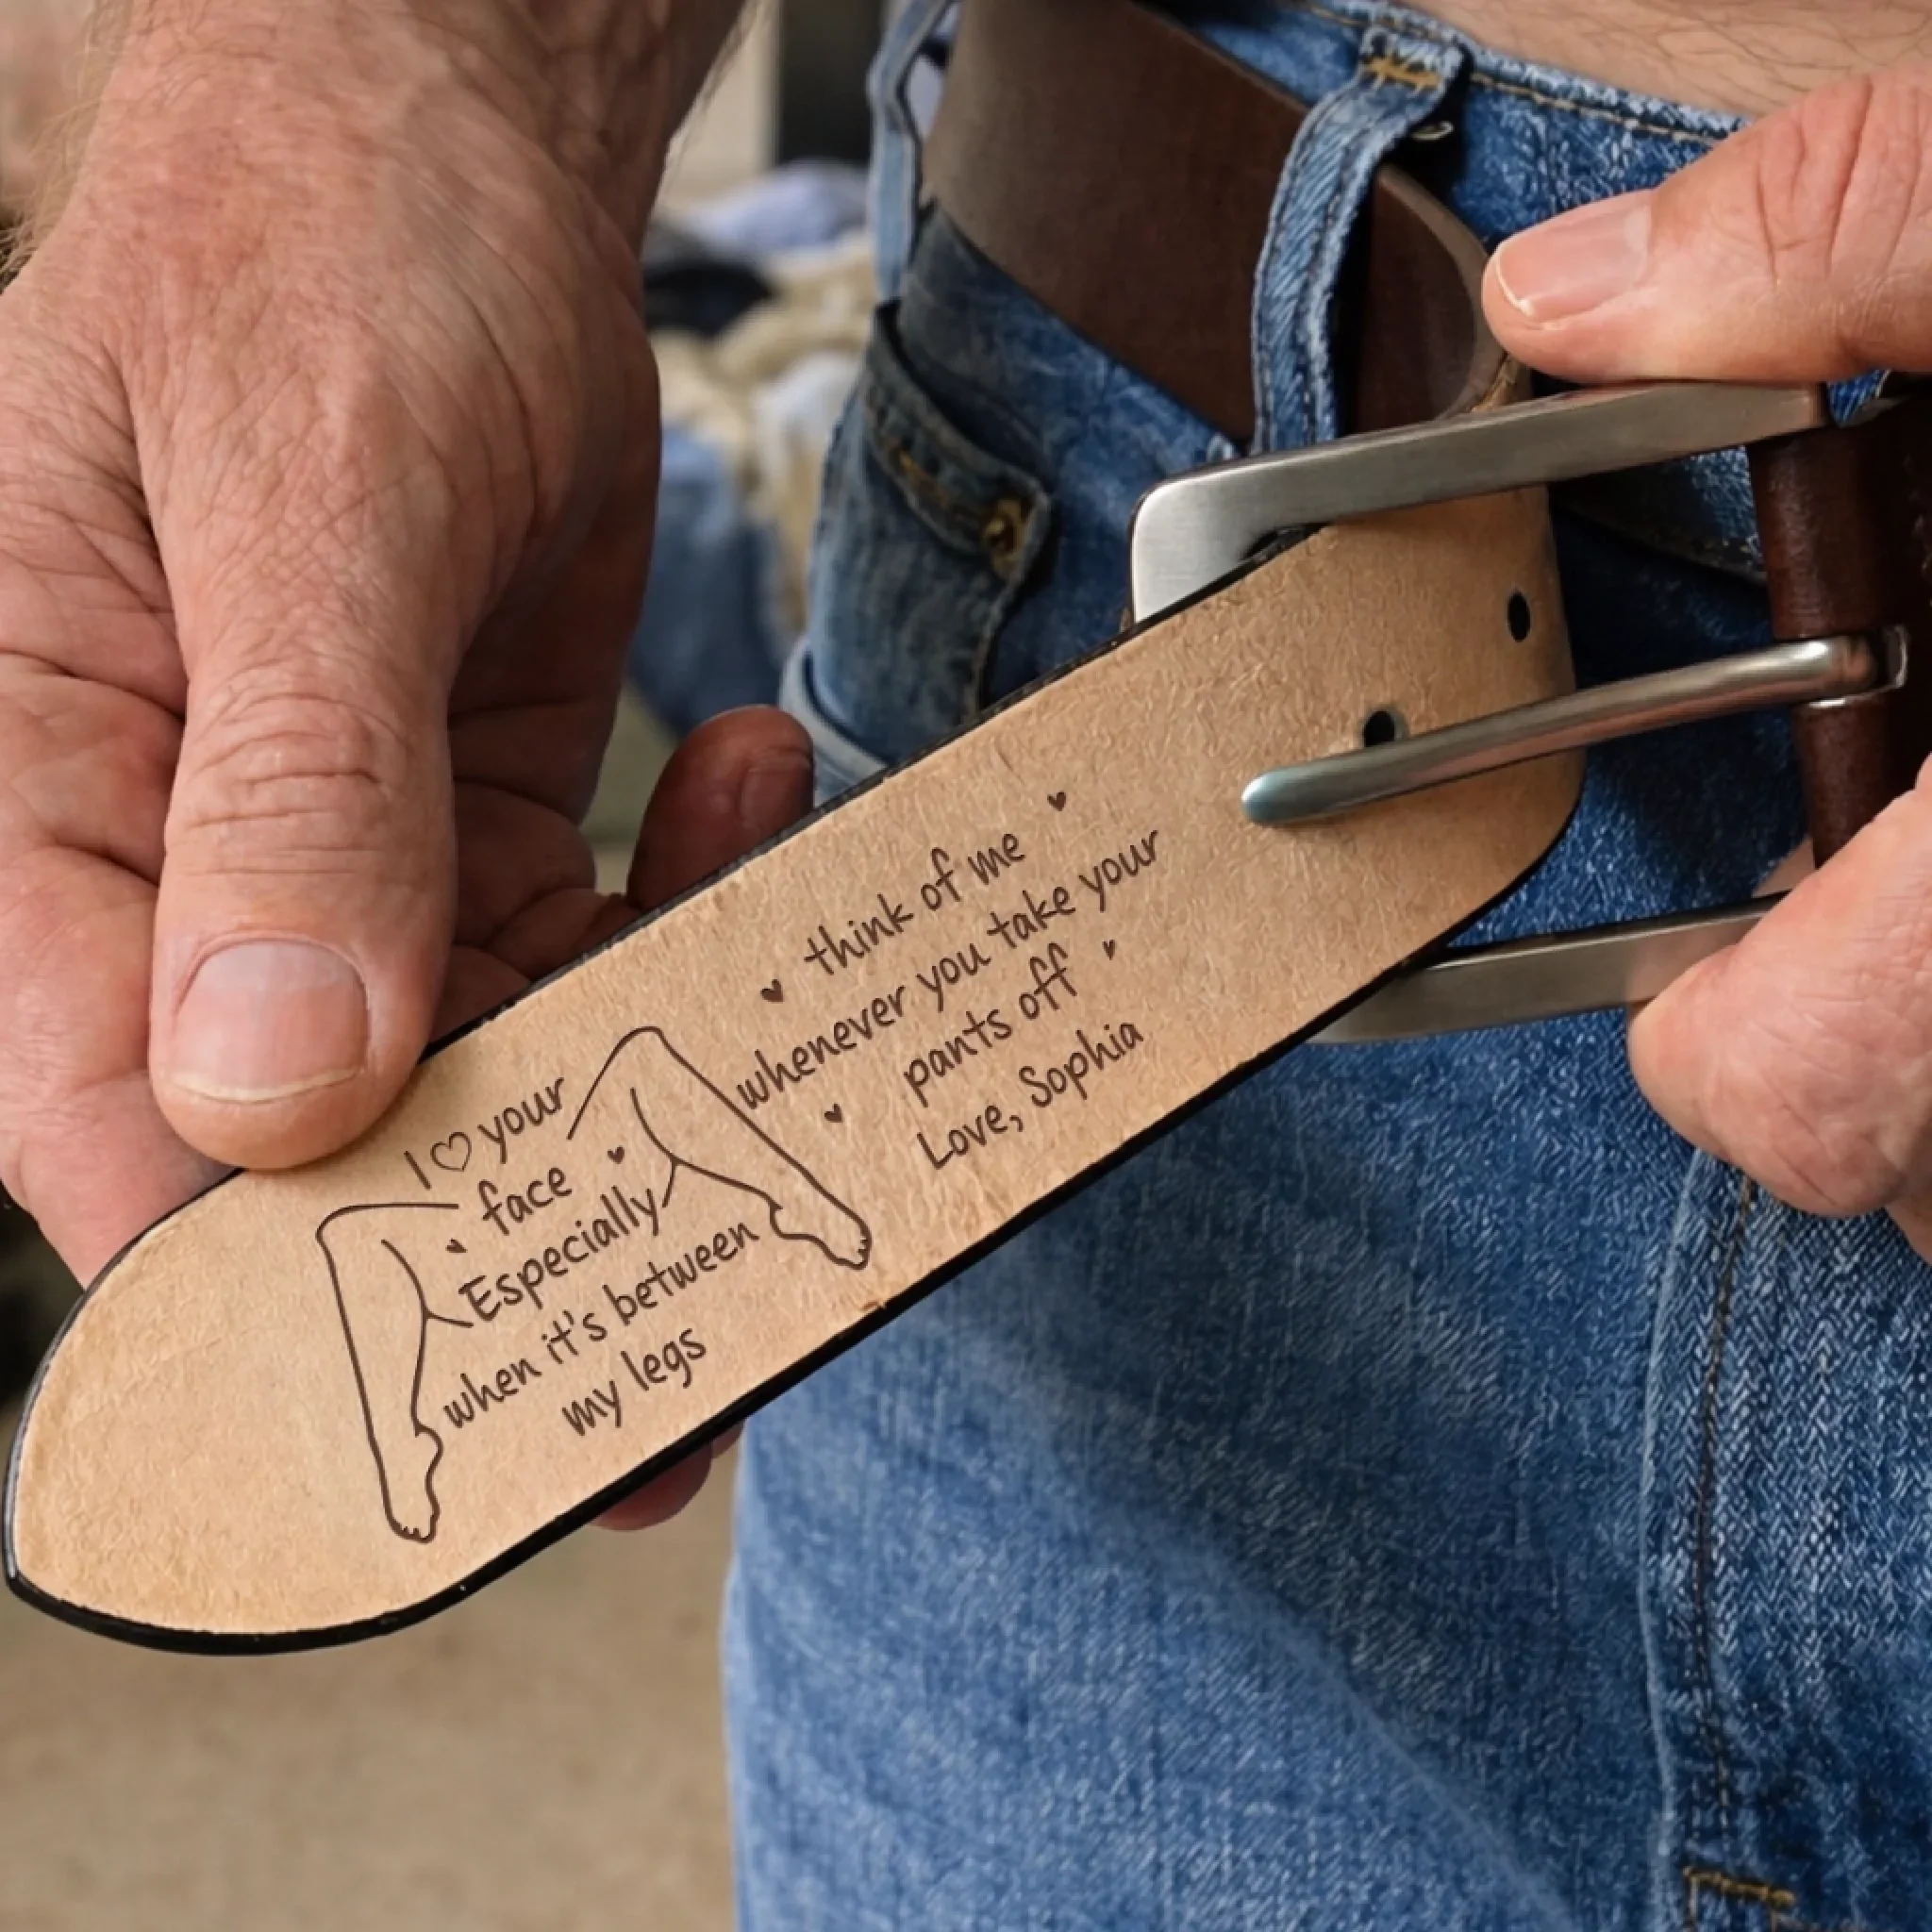 I ♡ your
face
Especially
when it's between
my legs
think of me
whenever you take your
pants off
Love, Sophia